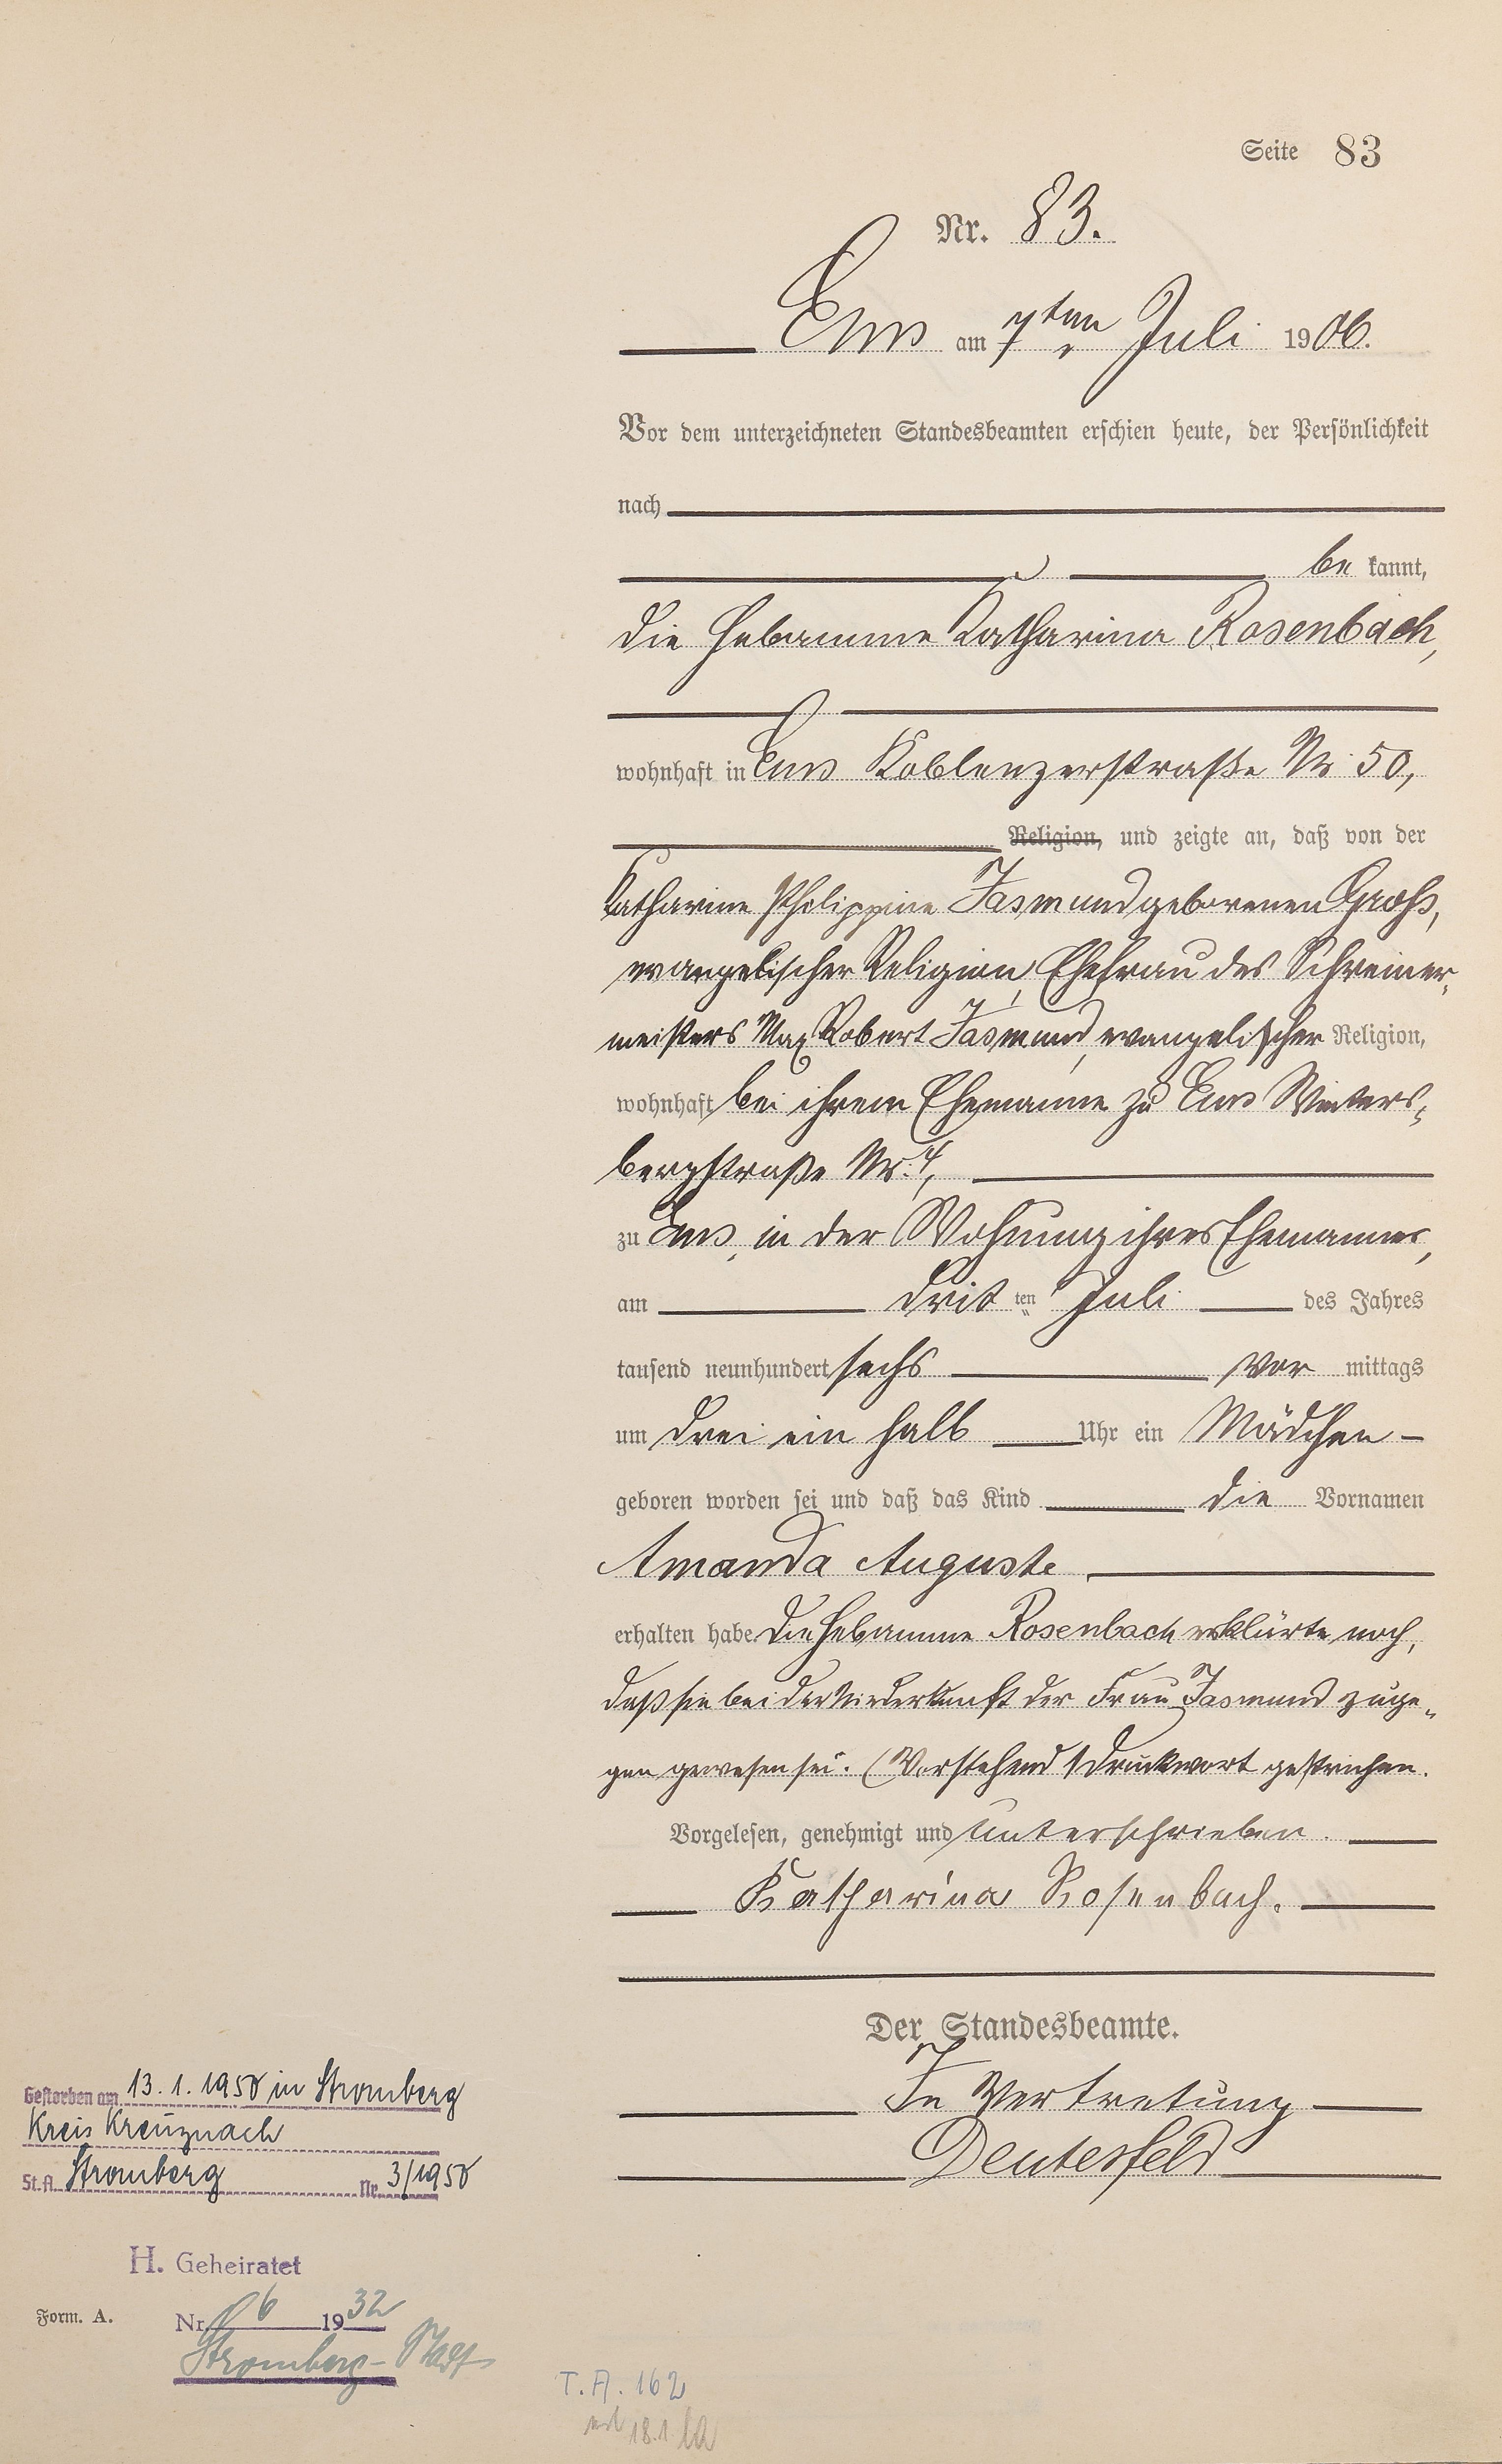 Seite 83
Nr. 83.
Ems am 7ten Juli 1906.
Vor dem unterzeichneten Standesbeamten erschien heute, der Persönlichkeit
nach
be kannt,
die Hebamme Katharina Rosenbach,
wohnhaft in Ems Koblenzerstraße Nr. 50,
Religion, und zeigte an, daß von der
Katharine Philippine Jasmund geborenen Groß,
evangelischer Religion, Ehefrau des Schreiner-
meisters Max Robert Jasmund, evangelischer Religion,
wohnhaft bei ihrem Ehemanne zu Ems Winters-
bergstraße Nr. 4,
zu Ems, in der Wohnung ihres Ehemannes,
am drit ten Juli des Jahres
tausend neunhundert sechs vor mittags
um drei ein halb Uhr ein Mädchen
geboren worden sei und daß das Kind die Vornamen
Amanda Auguste
erhalten habe. Die Hebamme Rosenbach erklärte noch,
daß sie bei der Niederkunft der Frau Jasmund zuge-
gen gewesen sei. (Vorstehend 1 Druckwort gestrichen.
Vorgelesen, genehmigt und unterschrieben.
Katharina Rosenbach.
Der Standesbeamte.
In Vertretung
Deutesfeld
Gestorben am 13.1.1950 in Stromberg
Kreis Kreuznach
St.A. Stromberg Nr. 3/1950
H. Geheiratet
Form. A.
Nr. 6 1932
Stromberg-Stadt
T.A. 162
18.1.